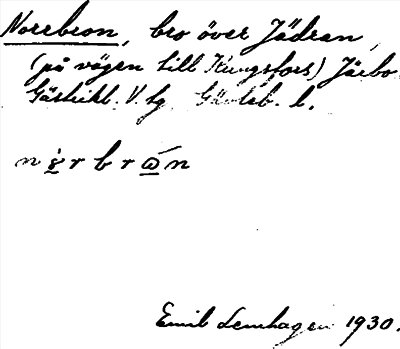 Norrbron, bro över Jädraån,
(på vägen till Kungsfors) Järbo
Gästrikl. V. tg Gävleb. l.
Emil Lenhagen 1930.